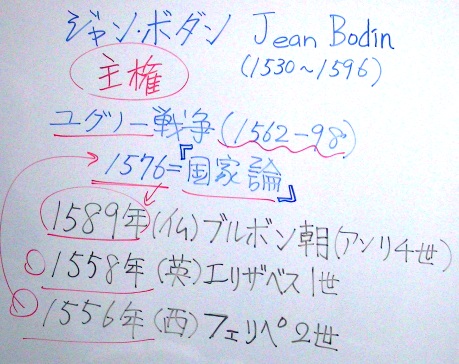 ジャン・ボダン Jean Bodin
主権 (1530~1596)
ユグノー戦争(1562-98)
1576=『国家論』
1589年(仏)ブルボン朝(アンリ4世)
1558年(英)エリザベス1世
1556年(西)フェリペ2世